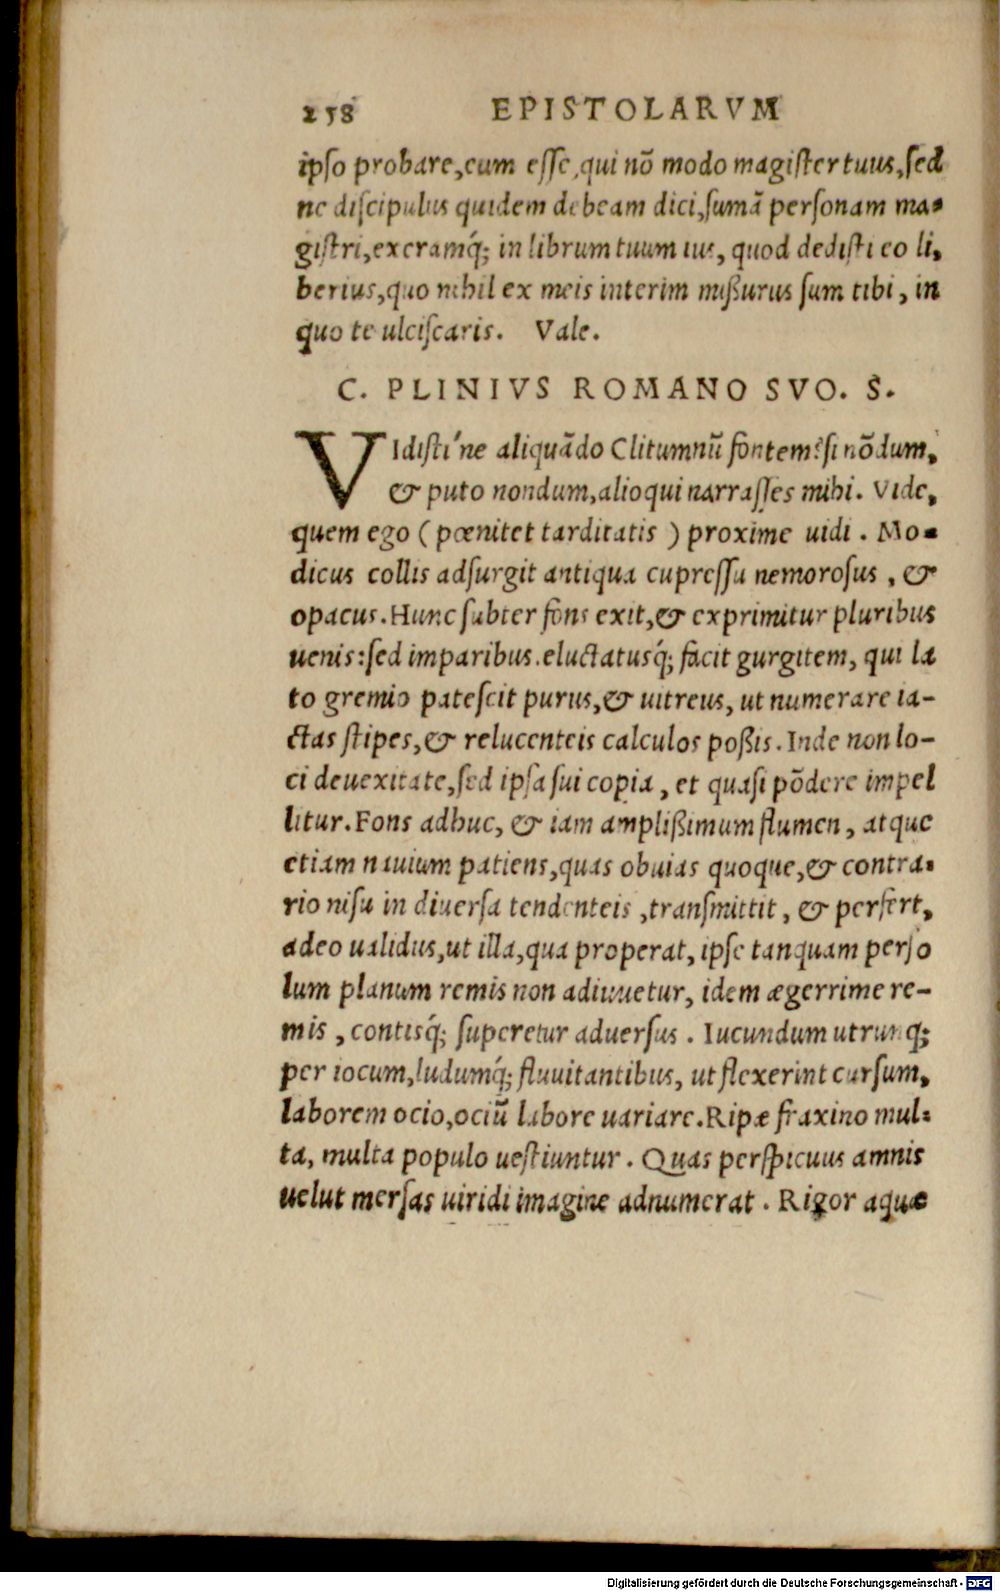 258 EPISTOLARVM
ipſo probare, eum eſſe, qui nō modo magiſter tuus, ſed
ne diſcipulus quidem debeam dici, ſumā perſonam ma-
giſtri, exeramq́; in librum tuum ius, quod dediſti eo li,
berius, quo nihil ex meis interim mißurus ſum tibi, in
quo te ulciſcaris. Vale.
C. PLINIVS ROMANO SVO. S.
VIdiſti'ne aliquādo Clitumnū fontem? ſi nōdum,
& puto nondum, alioqui narraſſes mihi. Vide,
quem ego (pœnitet tarditatis) proxime uidi. Mo-
dicus collis adſurgit antiqua cupreſſu nemoroſus, &
opacus. Hunc ſubter fons exit, & exprimitur pluribus
uenis: ſed imparibus. eluctatusq́; facit gurgitem, qui la
to gremio pateſcit purus, & uitreus, ut numerare ia-
ctas ſtipes, & relucenteis calculos poßis. Inde non lo-
ci deuexitate, ſed ipſa ſui copia, et quaſi pōdere impel
litur. Fons adhuc, & iam amplißimum flumen, atque
etiam nauium patiens, quas obuias quoque, & contra-
rio niſu in diuerſa tendenteis, tranſmittit, & perfert,
adeo ualidus, ut illa, qua properat, ipſe tanquam per ſo
lum planum remis non adiuuetur, idem ægerrime re-
mis, contisq́; ſuperetur aduerſus. Iucundum utrunq́;
per iocum, ludumq́; fluuitantibus, ut flexerint curſum,
laborem ocio, ociū labore uariare. Ripæ fraxino mul-
ta, multa populo ueſtiuntur. Quas perſpicuus amnis
uelut merſas uiridi imagine adnumerat. Rigor aquæ
Digitalisierung gefördert durch die Deutsche Forschungsgemeinschaft - DFG